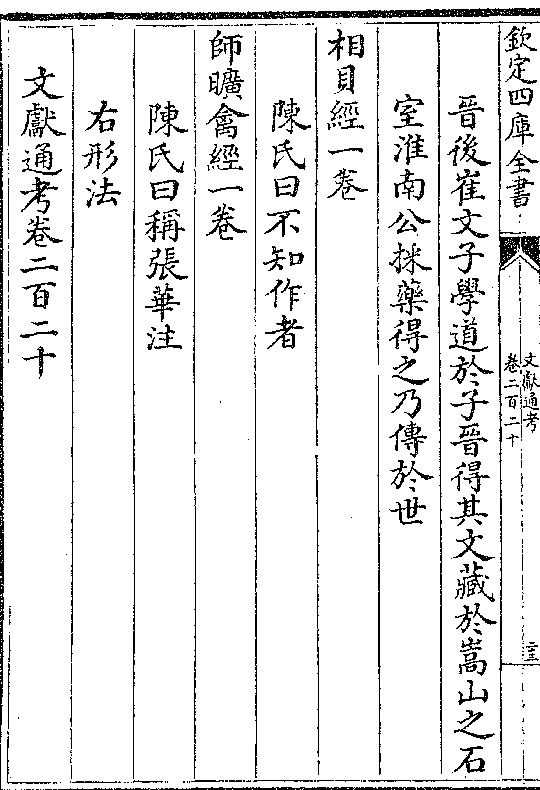 欽定四庫全書
文獻通考
卷二百二十
晉後崔文子學道於子晉得其文藏於嵩山之石
室淮南公採藥得之乃傳於世
相貝經一卷
陳氏曰不知作者
師曠禽經一卷
陳氏曰稱張華注
右形法
文獻通考卷二百二十